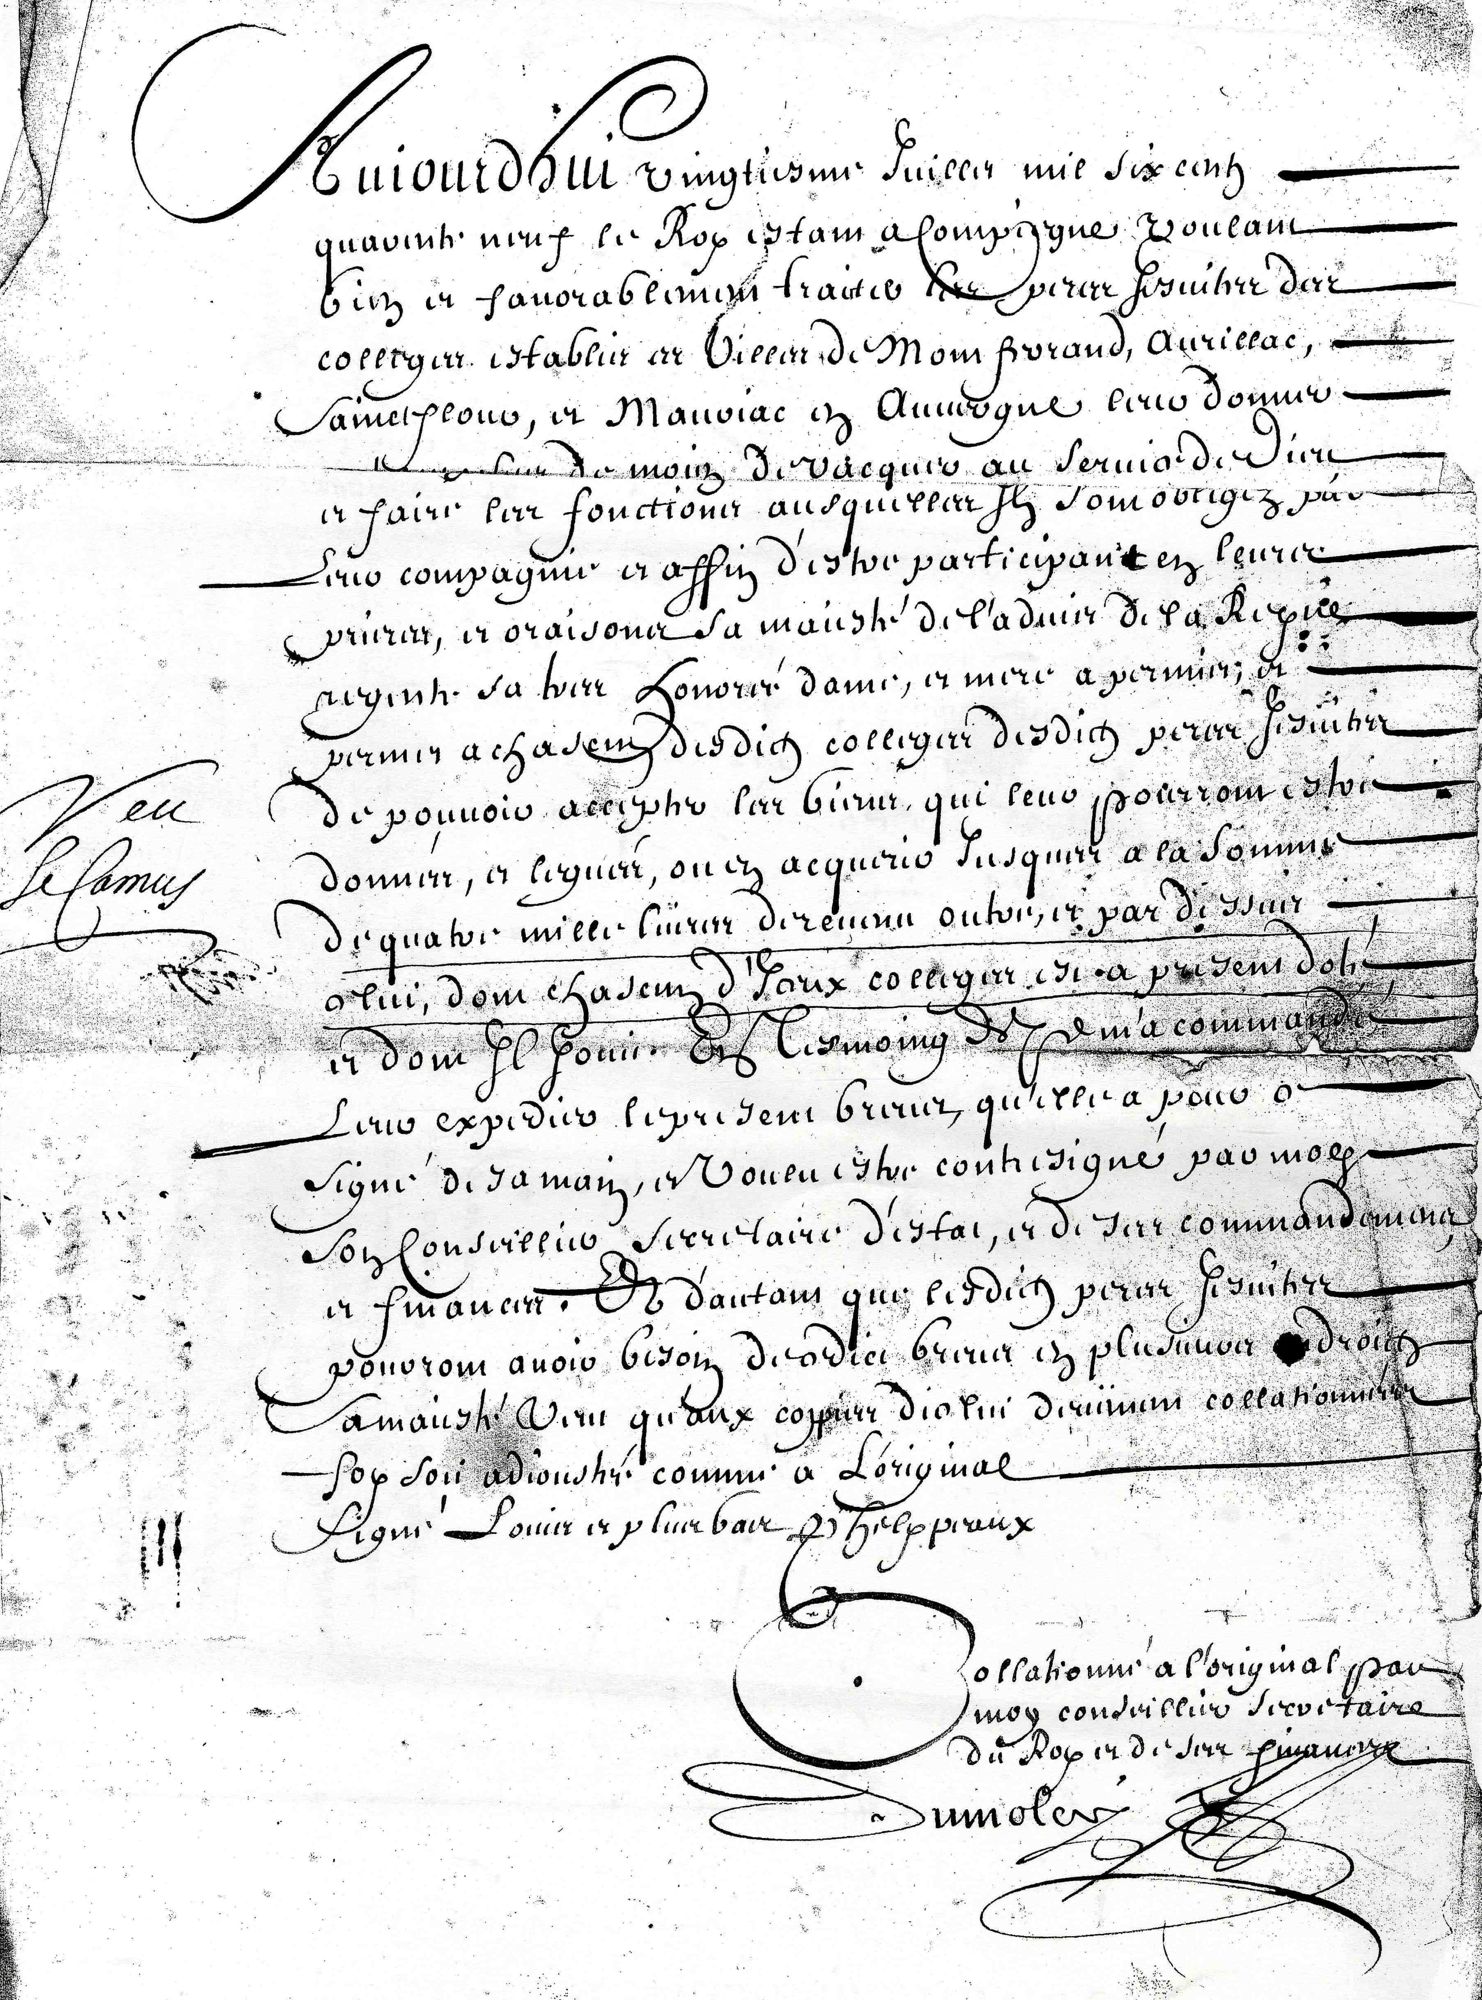 Aujourdhui vingtiesme Juillet mil six centz
quarente neuf le Roy estant a Compiegne voulant
bien et favorablement traicter les peres Jesuites des
colleges establis es villes de Montferrand, Aurillac,
Sainct flour, et Mauriac en Auvergne leur donner
de moien de vacquer au service de Dieu
et faire les fonctions ausquelles Ilz sont obligez par
Leur compagnie et affin d'estre participant en leurs
prieres, et oraisons sa maiesté de l'advis de la Reyne
regente sa tres honorée dame, et mere a permis, et
permet a chascun desdictz colleges desdictz peres Jesuites
de pouvoir accepter les biens qui leur pourront estre
donnés, et legués, ou en acquerir Jusques a la somme
de quatre mille livres de revenu outre, et par dessus
celui, dont chascun d'Iceux colleges est a present doté
et dont Il Jouit. En tesmoing de quoy Elle m'a commandé
Leur expedier le present brevet, qu'elle a pour ce
signé de sa main, et voulu estre contresigné par moy
son Conseiller secretaire d'estat, et de ses commandemens
et finances. Et d'autant que lesdictz peres Jesuites
pourront avoir besoin de cedict brevet en plusieurs endroictz
sa maiesté veut qu'aux coppies d'icelui deuëment collationnées
foy soit adioustée comme a L'original
Signé Louis et plus bas Phelyppeaux
Veu
Le Camus
Collationné a l'original par
moy conseiller secretaire
du Roy et de ses finances
Dumoley